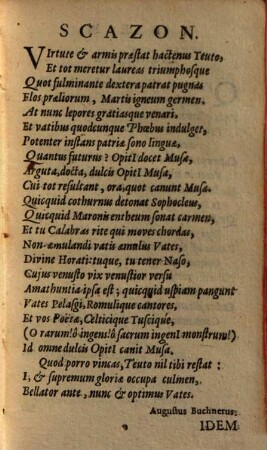 SCAZON.
Virtute & armis præstat hactenus Teuto,
Et tot meretur laureas triumphosque
Quot fulminante dextera patrat pugnas
Flos præliorum, Martis igneum germen.
At nunc lepores gratiasque venari,
Et vatibus quodcunque Phœbus indulget,
Potenter instans patriæ sono linguæ,
Quantus futurus? OpitI docet Musa,
Arguta, docta, dulcis OpitI Musa,
Cui tot resultant, ora, quot canunt Musæ.
Quicquid cothurnus detonat Sophocleus,
Quicquid Maronis entheum sonat carmen,
Et tu Calabras rite qui moves chordas,
Non-æmulandi vatis æmulus Vates,
Divine Horati: tuque, tu tener Naso,
Cujus venusto vix venustior versu
Amathuntia ipsa est; quicquid uspiam pangunt
Vates Pelasgi, Romulique cantores,
Et vos Poëtæ, Celticique Tuscique,
(O rarum! ô ingens! ô sacrum ingenI monstrum!)
Id omne dulcis OpitI canit Musa.
Quod porro vincas, Teuto nil tibi restat:
I, & supremum gloriæ occupa culmen,
Bellator ante, nunc & optimus Vates.
Augustus Buchnerus.
IDEM